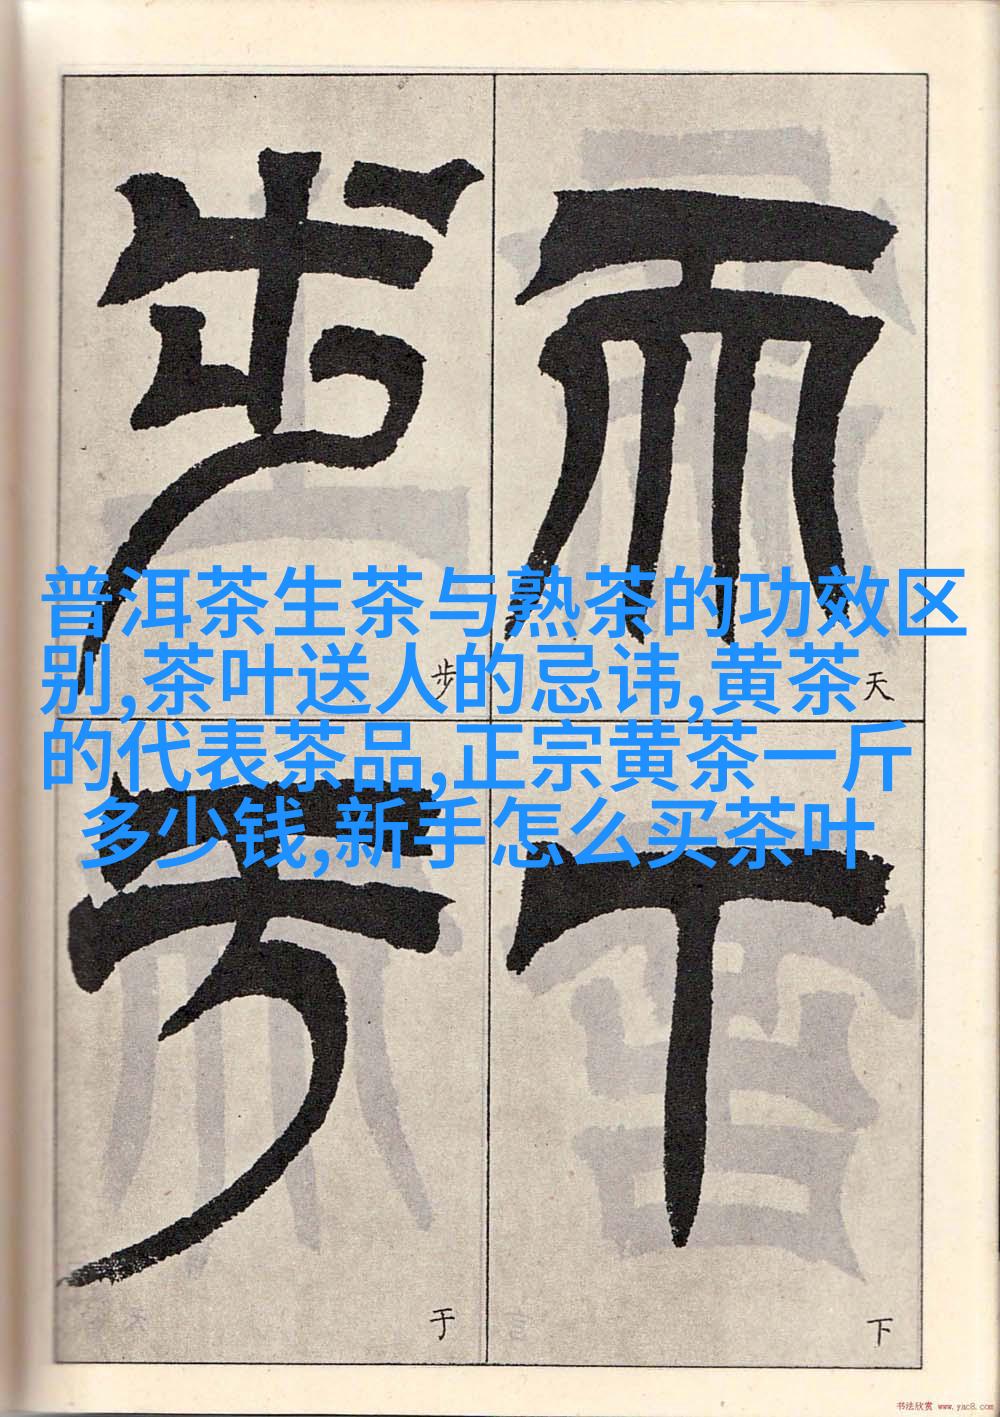 天
下
步
于
普洱茶生茶与熟茶的功效区
别,茶叶送人的忌讳,黄茶
的代表茶品,正宗黄茶一斤
多少钱,新手怎么买茶叶
天
步
下
于
书法欣赏 www.yac8.com